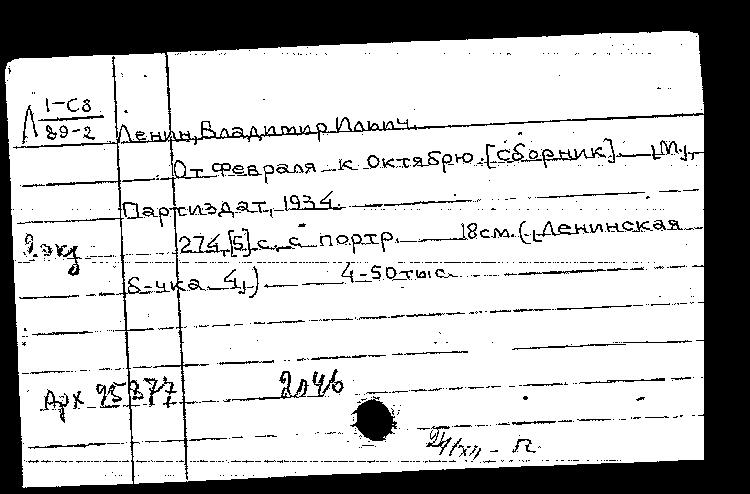 Л 1-С8
89-2
Ленин, Владимир Ильич.
От Февраля к Октябрю. [Сборник]. [М.],
Партиздат, 1934.
2 экз
274, [5] с. с портр. 18см. ([Ленинская
б-чка 4])
4-50тыс.
Арх 25877